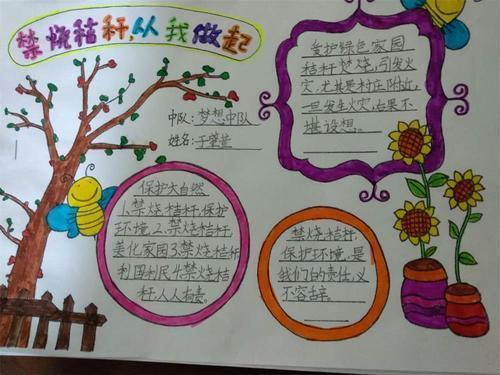 禁烧秸秆,从我做起
中队:梦想中队
姓名:于肇芸
爱护绿色家园
秸秆焚烧,引发火
灾,尤其是村庄附近,
一旦发生火灾,后果不
堪设想。
保护大自然
1.禁烧秸秆,保护
环境2.禁烧秸秆
美化家园3.禁烧秸秆
利国利民4.禁烧秸
秆人人有责。
禁烧秸秆
保护环境,是
我们的责任,义
不容辞。